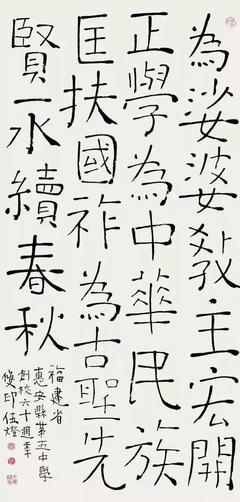 為娑婆教主宏開
正學為中華民族
匡扶國祚為古聖先
賢永續春秋
福建省
惠安縣第五中學
創校六十週年
印伍燈